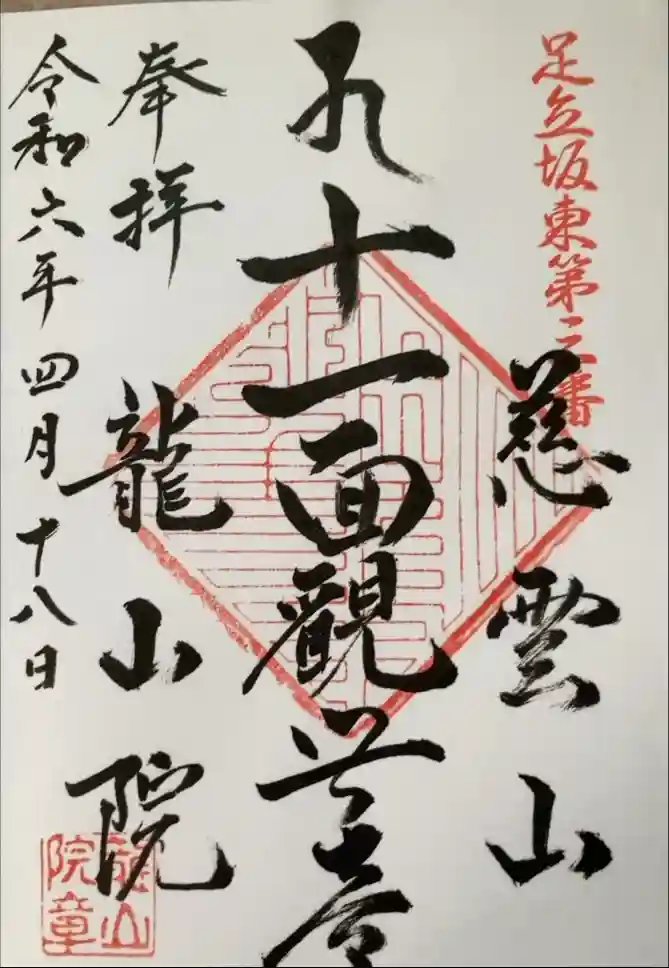 足立坂東第三番
慈雲山
十一面觀世音
奉拝 龍山院
令和六年四月十八日
龍山
院章